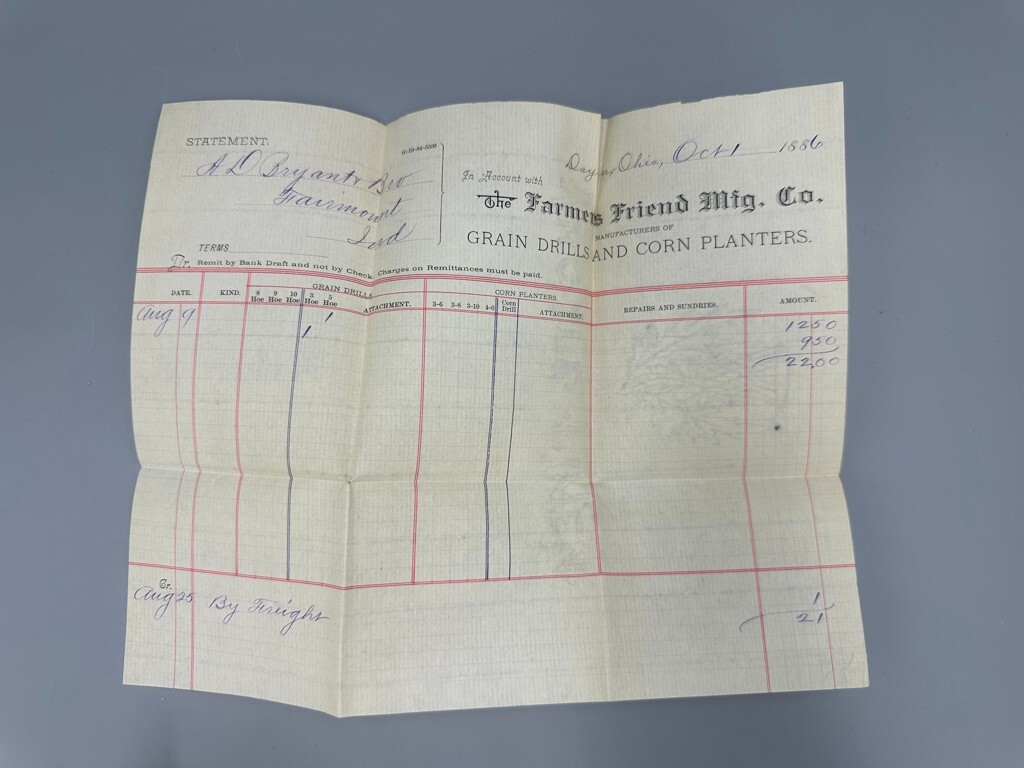 STATEMENT.
G-10-84-5500
Dayton, Ohio, Oct 1 1886
A D Bryant & Bro
Fairmount
Ind
In Account with
The Farmers Friend Mfg. Co.
MANUFACTURERS OF
GRAIN DRILLS AND CORN PLANTERS.
TERMS
Dr. Remit by Bank Draft and not by Check. Charges on Remittances must be paid.
DATE. KIND. GRAIN DRILLS. CORN PLANTERS. REPAIRS AND SUNDRIES. AMOUNT.
8 Hoe 9 Hoe 10 Hoe 3 Hoe 5 Hoe ATTACHMENT. 3-6 3-8 3-10 4-0 Corn Drill ATTACHMENT.
Aug 9 1 12 50
1 9 50
22 00
Cr.
Aug 25 By Freight 1
21